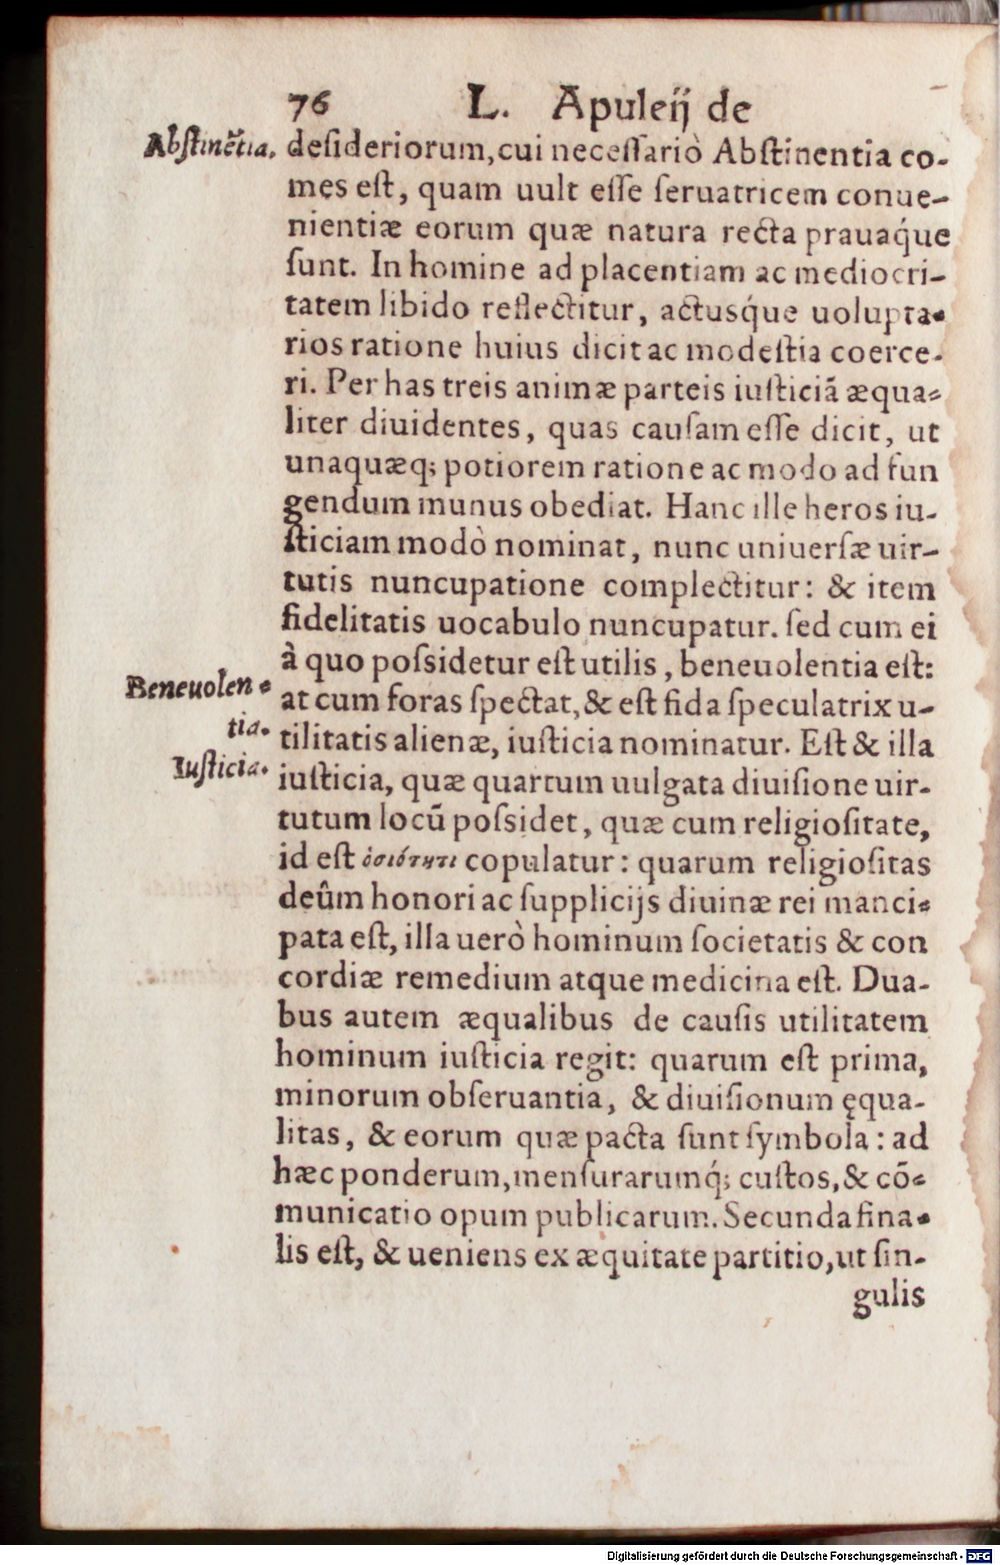 76 L. Apuleij de
Abſtinẽtia.
deſideriorum, cui neceſſariò Abſtinentia co-
mes eſt, quam uult eſſe ſeruatricem conue-
nientiæ eorum quæ natura recta prauaq́ue
ſunt. In homine ad placentiam ac mediocri-
tatem libido reflectitur, actusq́ue uolupta-
rios ratione huius dicit ac modeſtia coerce-
ri. Per has treis animæ parteis iuſticiã æqua-
liter diuidentes, quas cauſam eſſe dicit, ut
unaquæq; potiorem ratione ac modo ad fun
gendum munus obediat. Hanc ille heros iu-
ſticiam modò nominat, nunc uniuerſæ uir-
tutis nuncupatione complectitur: & item
fidelitatis uocabulo nuncupatur. ſed cum ei
à quo poſsidetur eſt utilis, beneuolentia eſt:
Beneuolen-
tia.
at cum foras ſpectat, & eſt fida ſpeculatrix u-
tilitatis alienæ, iuſticia nominatur. Eſt & illa
Iuſticia.
iuſticia, quæ quartum uulgata diuiſione uir-
tutum locũ poſsidet, quæ cum religioſitate,
id eſt ὁσιότητι copulatur: quarum religioſitas
deûm honori ac ſupplicijs diuinæ rei manci-
pata eſt, illa uerò hominum ſocietatis & con
cordiæ remedium atque medicina eſt. Dua-
bus autem æqualibus de cauſis utilitatem
hominum iuſticia regit: quarum eſt prima,
minorum obſeruantia, & diuiſionum ęqua-
litas, & eorum quæ pacta ſunt ſymbola: ad
hæc ponderum, menſurarumq́; cuſtos, & cõ-
municatio opum publicarum. Secunda fina-
lis eſt, & ueniens ex æquitate partitio, ut ſin-
gulis
Digitalisierung gefördert durch die Deutsche Forschungsgemeinschaft - DFG